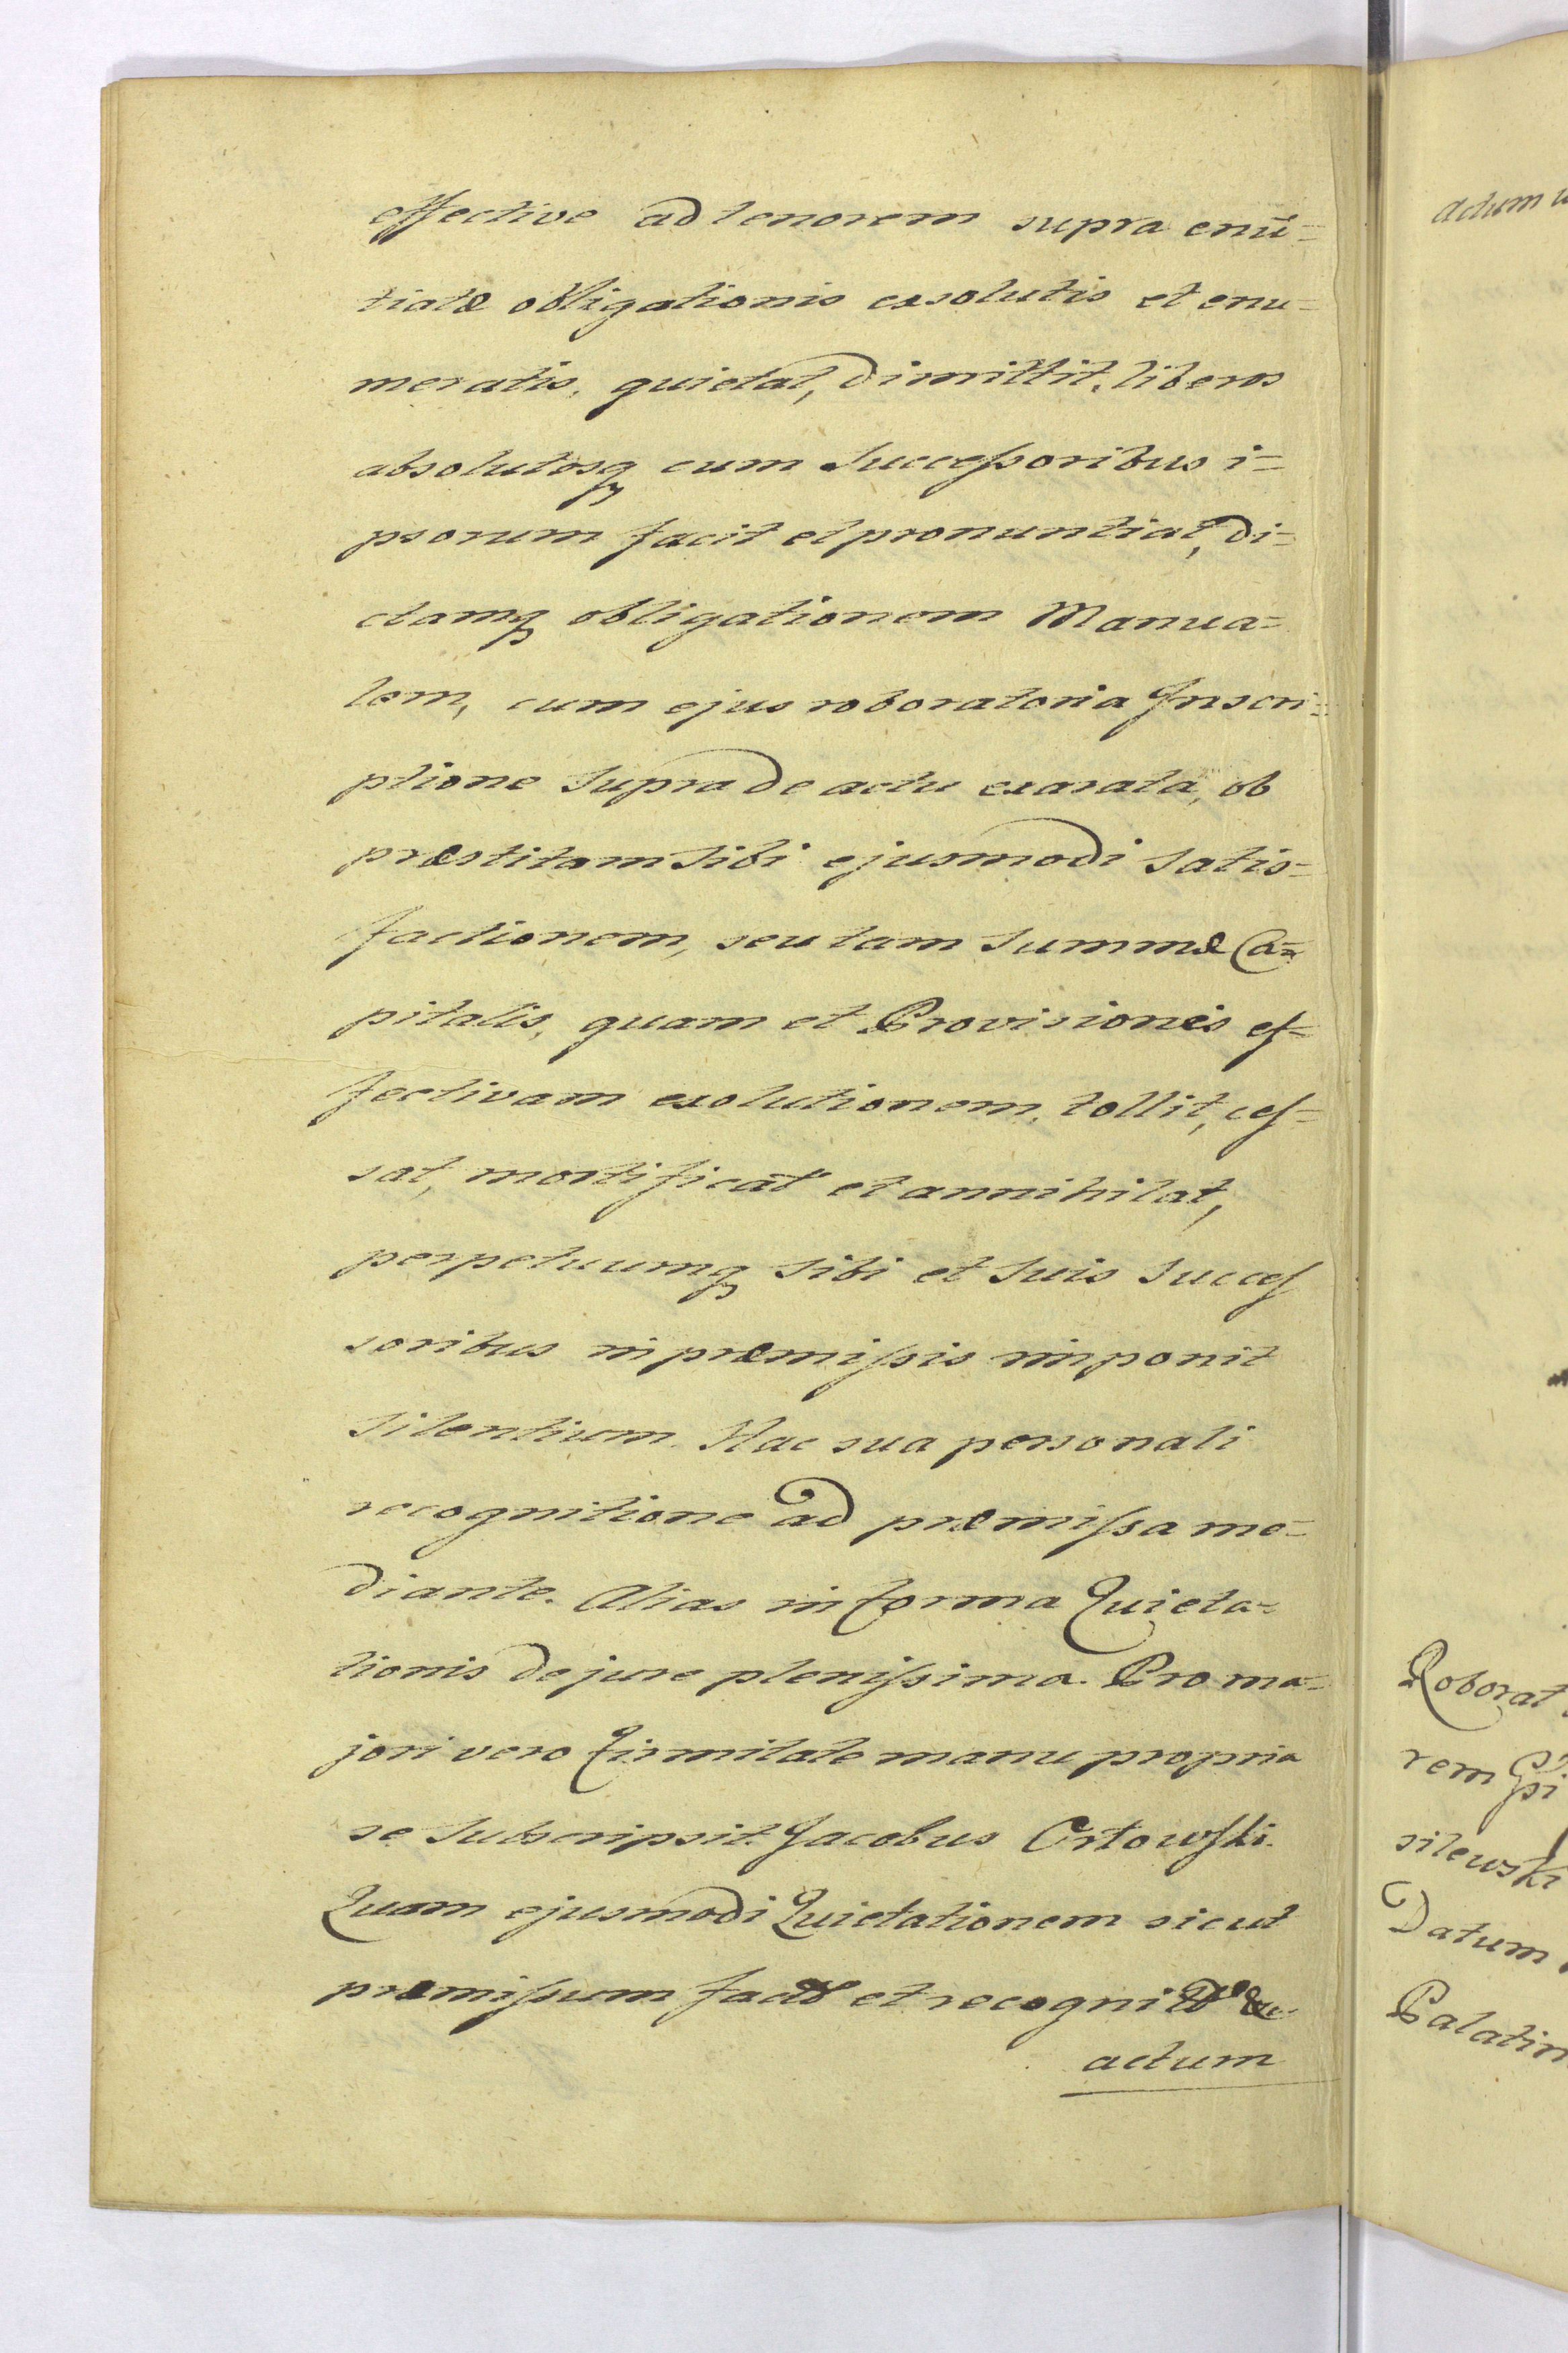 effective ad tenorem supra enū=
tiatæ obligationis exsolutis et enu=
meratis, quietat, dimittit, liberos
absolutosq cum Succeſsoribus i=
psorum facit et pronuntiat, di=
ctamq obligationem Manua=
lem, cum ejus roboratoria Inscri=
ptione supra de actu exarata, ob
præstitam sibi ejusmodi Satis=
factionem, seu tam Summæ Ca=
pitalis, quam et Provisionis ef=
fectivam exolutionem, tollit, ceſ=
sat, mortificat et annihilat,
perpetuumq sibi et suis Succeſ
soribus in præmiſsis imponit
Silentium. Hac sua personali
recognitione ad præmiſsa me=
diante. Alias in forma Quieta=
tionis de jure pleniſsima. Pro ma=
jori vero firmitate manu propria
se Subscripsit. Jacobus Ortowſki.
Quam ejusmodi Quietationem sicut
præmiſsum facit et recognit
actum
actum
Roborat
rem
silewski
Datum
Palatin